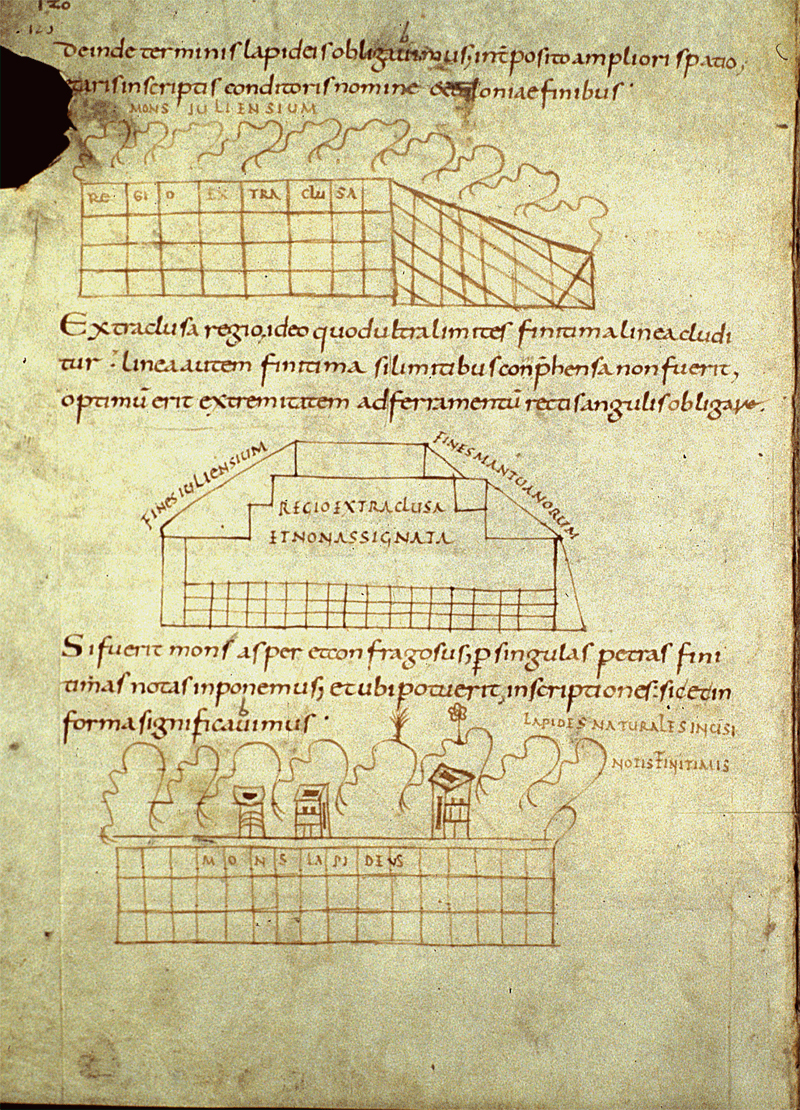 120
Deinde terminis lapideis obligabimus, int̄posito ampliori spatio,
aris inscriptis conditoris nomine & coloniae finibus·
MONS IULIENSIUM
RE GI O EX TRA CLU SA
Extraclusa regio, ideo quod ultra limites finitima linea cludi
tur· linea autem finitima si limitibus conp̄hensa non fuerit,
optimū erit extremitatem ad ferramentū rectis angulis obligare.
FINES IULIENSIUM
FINES MANTUANORUM
REGIO EXTRA CLUSA
ET NON ASSIGNATA
Si fuerit mons asper et confragosus, p singulas petras fini
timas notas inponemus, et ubi potuerit, inscriptiones: sic et in
forma significavimus·
b
LAPIDES NATURALES INCISI
NOTIS FINITIMIS
MONS LAPIDEUS